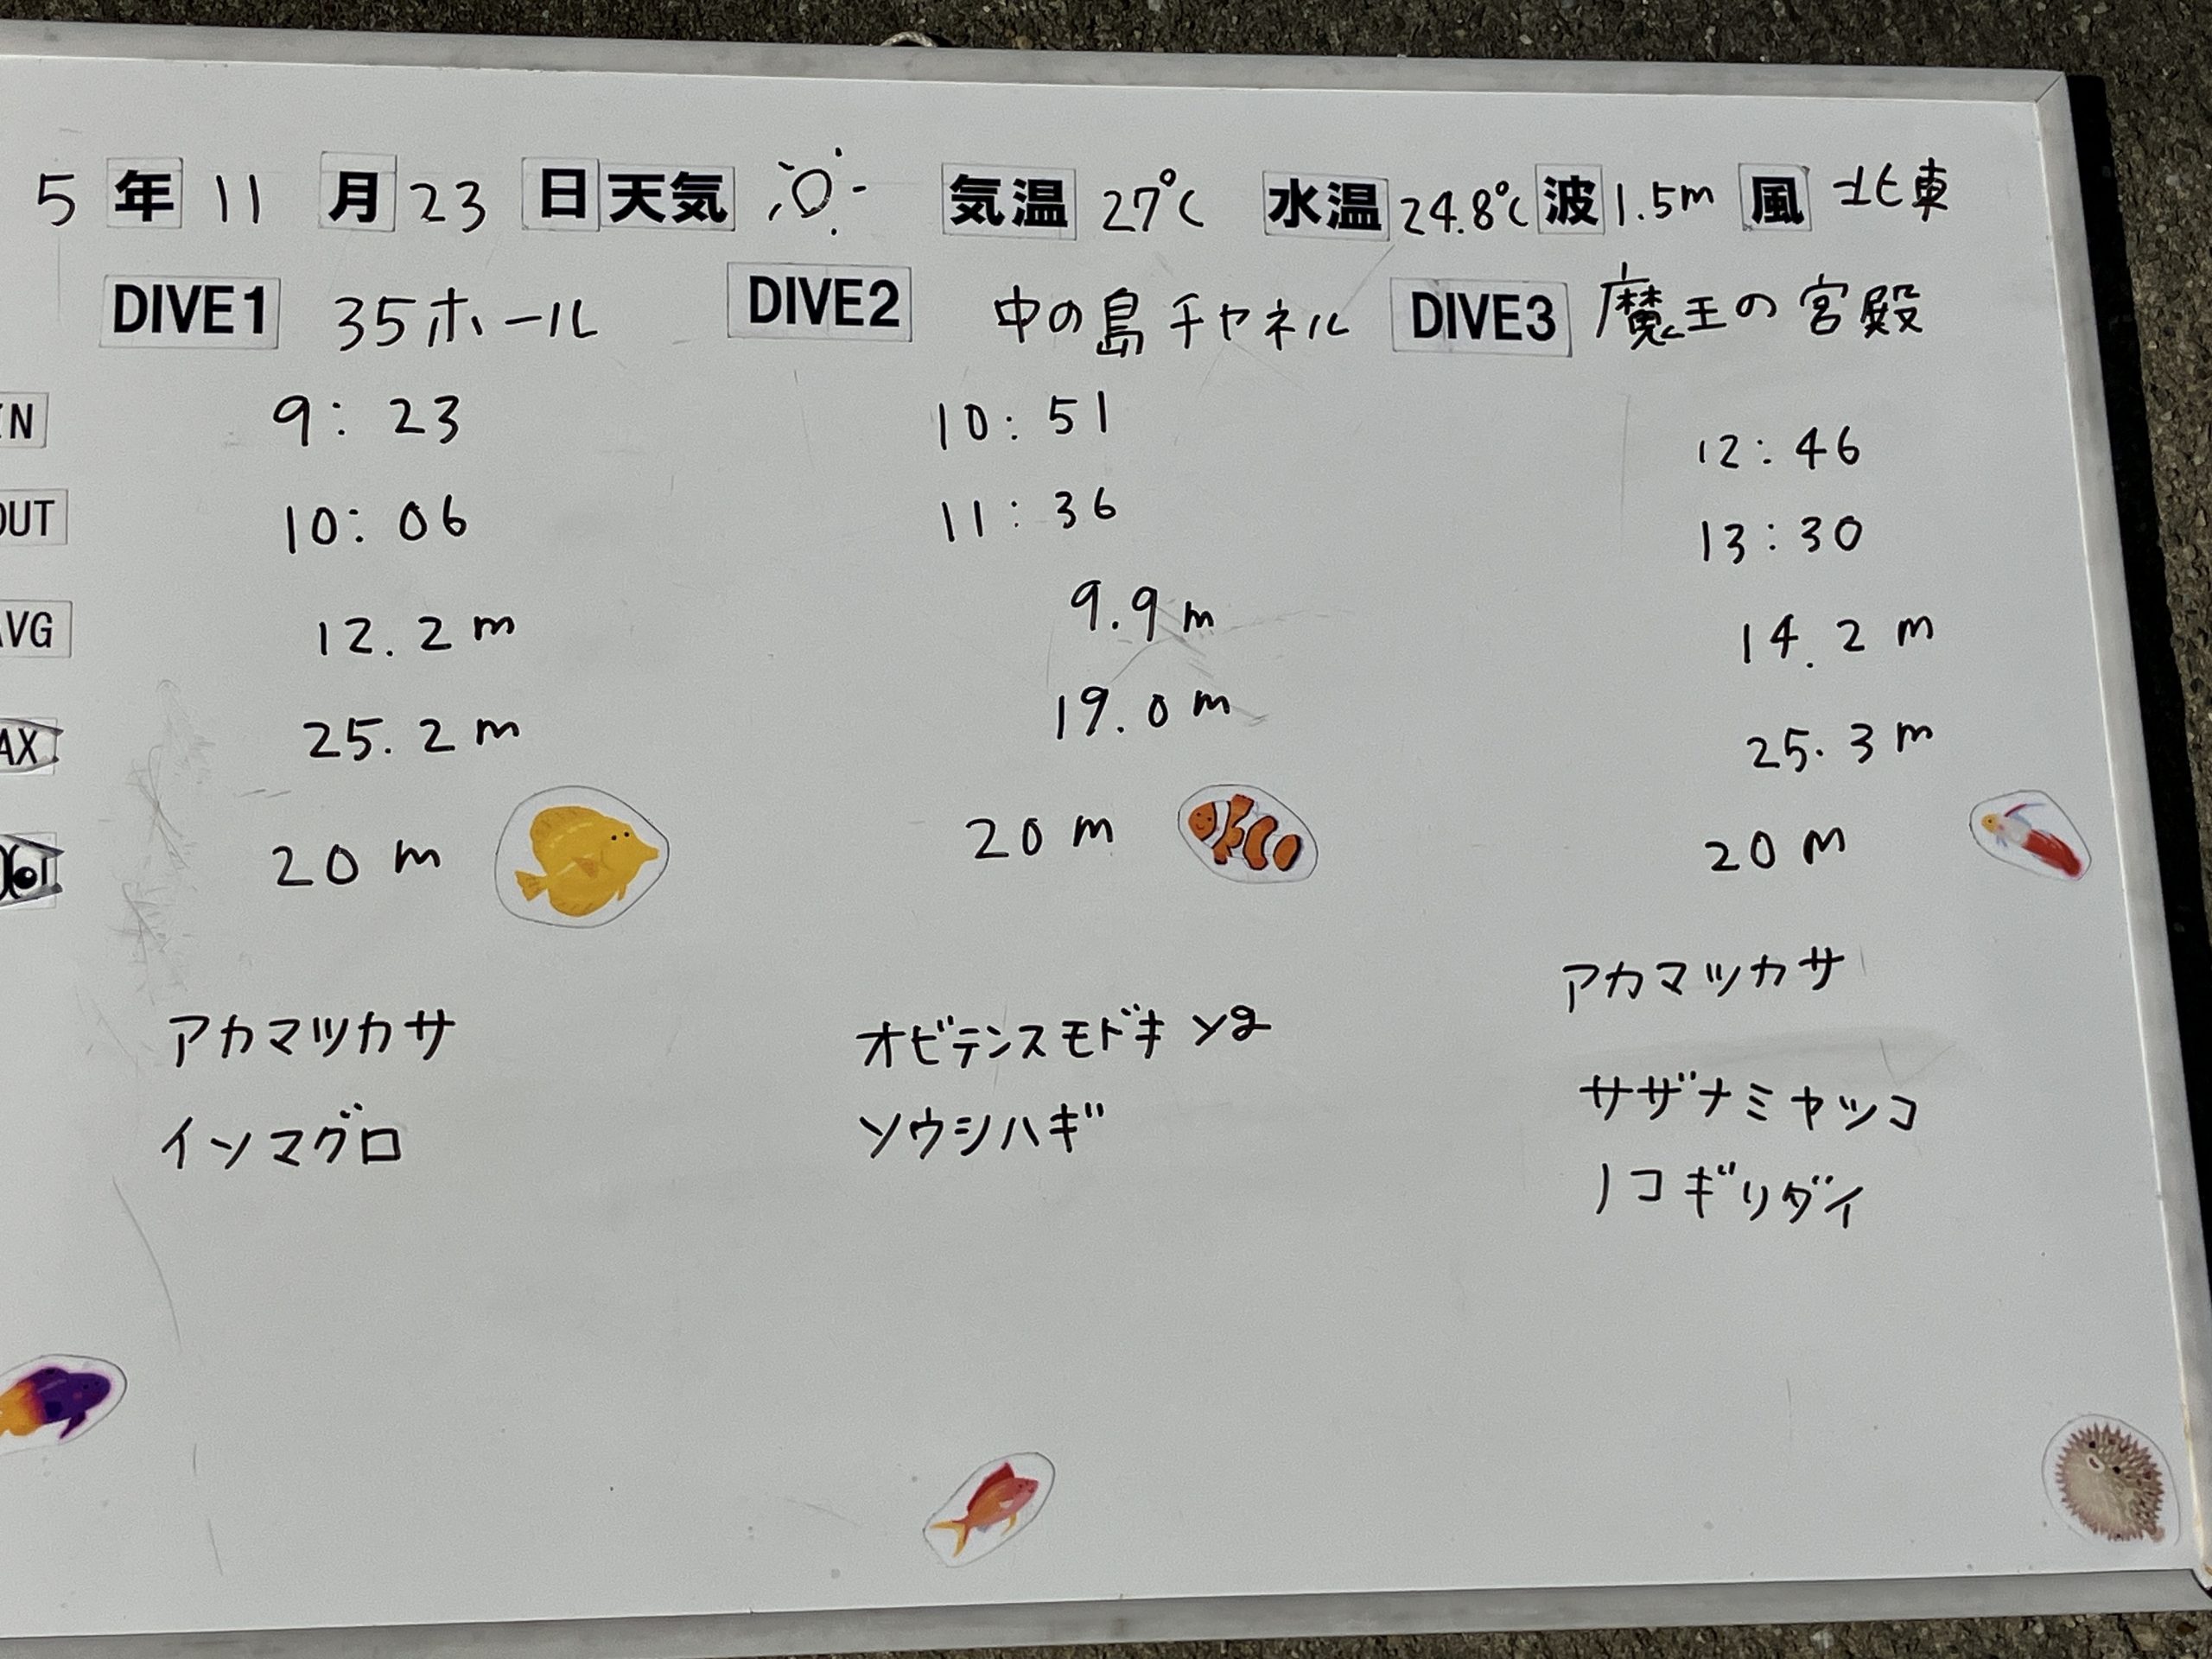 5年 11月 23日 天気 気温 27℃ 水温 24.8℃ 波 1.5m 風 北東
DIVE1 35ホール DIVE2 中の島チャネル DIVE3 魔王の宮殿
IN 9:23 10:51 12:46
OUT 10:06 11:36 13:30
AVG 12.2m 9.9m 14.2m
AX 25.2m 19.0m 25.3m
20m 20m 20m
アカマツカサ オビテンスモドキ yg アカマツカサ
イソマグロ ソウシハギ サザナミヤッコ
ノコギリダイ